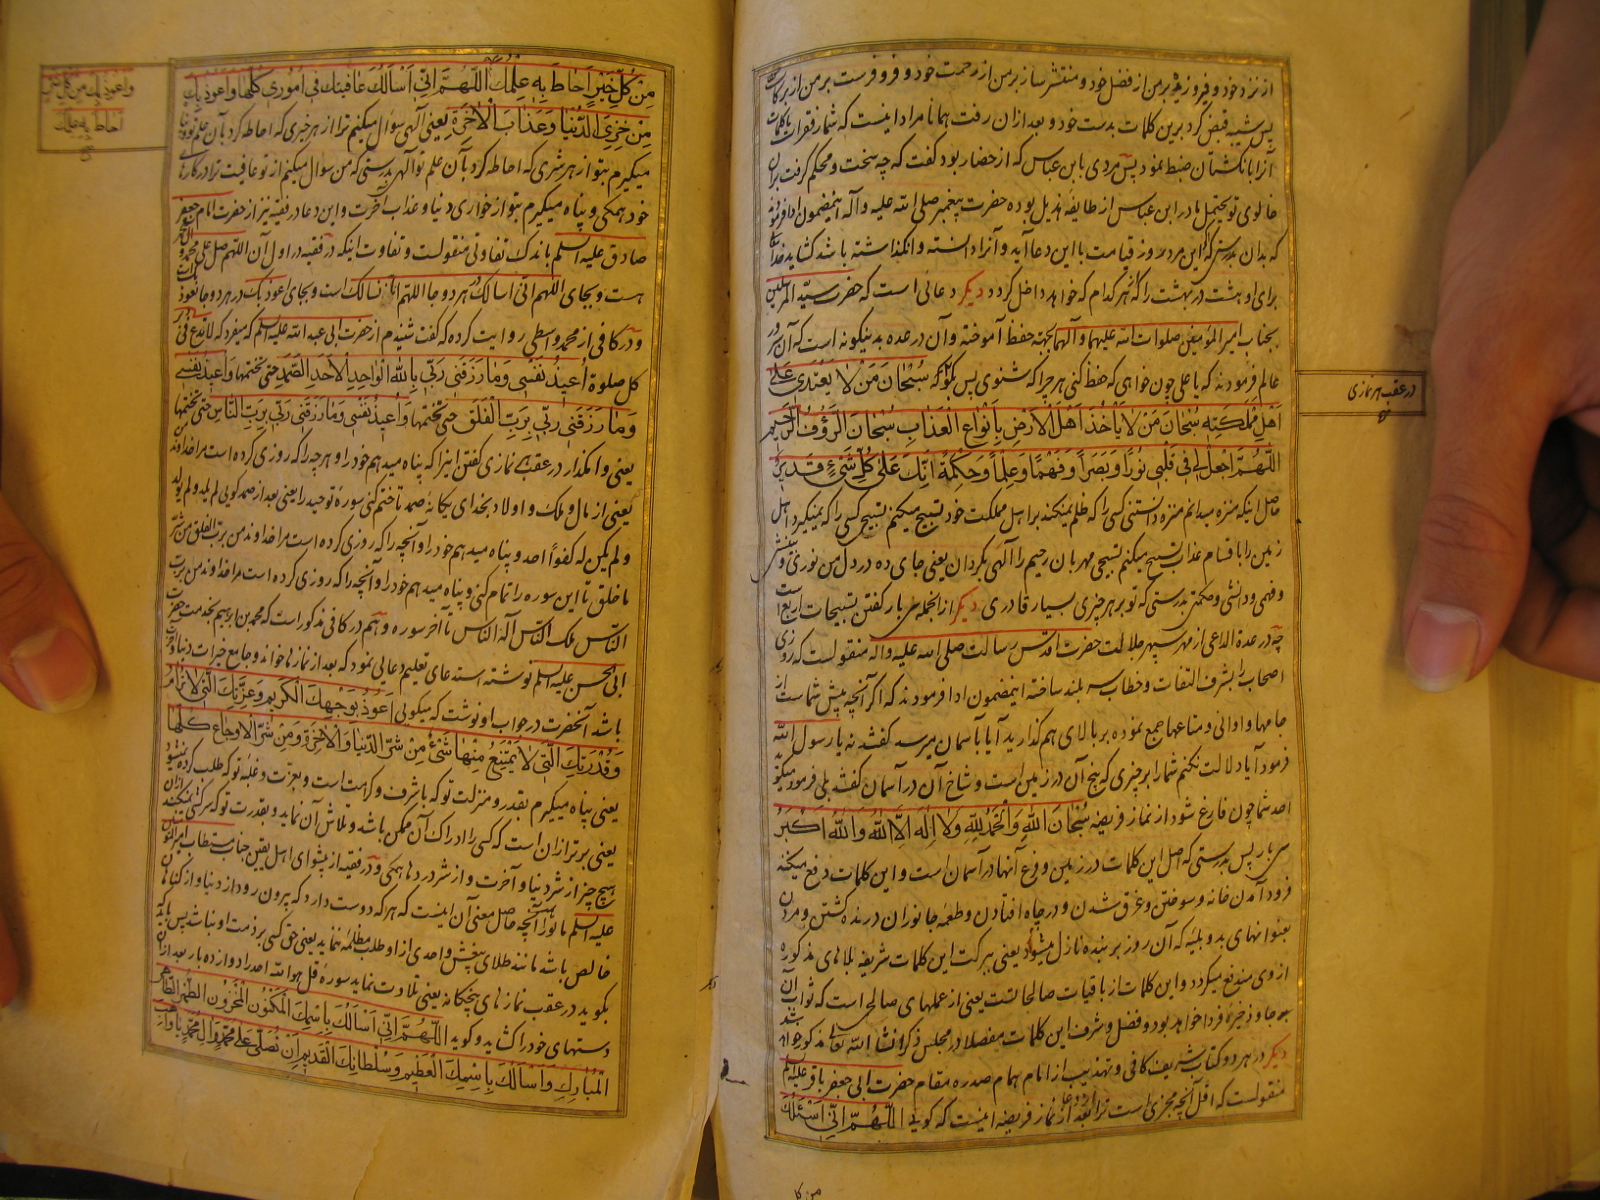 از نزد خود و فیروزی بر من از فضل خود و منتشر ساز بر من از رحمت خود و فرو فرست بر من از برکات
پس شیبه قبض کرد برین کلمات بدست خود و بعد ازان رفت همانا مراد اینست که شمار فقرات یا کلمات
آنرا بانگشتان ضبط نمود پس مردی بابن عباس که از حضار بود گفت که چه سخت و محکم گرفت بران
خالوی تو یحتمل مادر ابن عباس از طایفه هذیل بوده حضرت پیغمبر صلی الله علیه و آله اینمضمون ادا فرمودند
که بدان بدرستی که این مرد اگر روز قیامت با این دعا آید و آنرا دانسته وانگذاشته باشد کشاید خدا
برای او هشت در بهشت را که از هر کدام که خواهد داخل گردد دیگر دعائی است که حضرت سید المرسلین
بجناب امیر المؤمنین صلوات الله علیهما و آلهما بجهته حفظ آموخته و آن در عده بدینگونه است که آن سرور
عالم فرمودند که یا علی چون خواهی که حفظ کنی هر چرا که شنوی پس بگو که سُبْحَانَ مَنْ لا یَعْتَدی عَلی
در عقب هر نمازی
اَهْلِ مَمْلَکَتِهِ سُبْحَانَ مَنْ لا یَأخُذُ اَهْلَ الْاَرْضِ بِاَنْواعِ الْعَذابِ سُبْحَانَ الرَّؤُفِ الرَّحیمِ
اَللّهُمَّ اجْعَلْ لی فی قَلْبی نُوراً وَ بَصَراً وَ فَهْماً وَ عِلْماً وَ حِکْمَةً اِنَّکَ عَلی کُلِّ شَئٍ قَدیرٌ
حاصل اینکه منزه میدانم منزه دانستنی کسی را که ظلم نمیکند بر اهل مملکت خود تسبیح میکنم تسبیح کسی را که نمیگیرد اهل
زمین را باقسام عذاب تسبیح میکنم تسبیحی مهربان رحیم را آلهی بگردان یعنی جای ده در دل من نوری و بینش
و فهمی و دانشی و حکمتی بدرستی که تو بر هر چیزی بسیار قادری دیگر از انجمله سی بار گفتن تسبیحات اربع است
چه در عدة الداعی از مهر سپهر جلالت حضرت اقدس رسالت صلی الله علیه و آله منقولست که روزی
اصحاب را بشرف التفات و خطاب سر بلند ساخته اینمضمون ادا فرمودند که اگر آنچه پیش شماست از
جامها و اوانی و متاعها جمع نموده بر بالای هم گذارید آیا بآسمان میرسد گفتند نه یا رسول الله
فرمود آیا دلالت نکنم شما را بر چیزی که بیخ آن در زمین است و شاخ آن در آسمان گفتند بلی فرمود میگوید
احد شما چون فارغ شود از نماز فریضه سُبْحَانَ اللهِ وَ الْحَمْدُ لِلّهِ وَلا اِلهَ اِلَّا اللهُ وَاللهُ اَکْبَرُ
سی بار پس بدرستی که اصل این کلمات در زمین و فرع آنها در آسمان است و این کلمات دفع میکند
فرود آمدن خانه و سوختن و غرق شدن و در چاه افتادن و طعمه جانوران درنده گشتن و مردن
بعنوانهای بد و بلیه که آن روز بر بنده نازل میشود یعنی ببرکت این کلمات شریفه بلاهای مذکوره
از وی مندفع میگردد و این کلمات از باقیات صالحاتست یعنی از عملهای صالحی است که ثواب آن
بجا و ذخیره فردا خواهد بود و فضل و شرف این کلمات مفصلا در مجلس ذکر انشا الله تعالی مذکور خواهد شد
دیگر در هر دو کتاب شریف کافی و تهذیب از امام همام صدره مقام حضرت ابی جعفر باقر علیه السلم
منقولست که اقل آنچه مجزی است ترا از دعا بعد از نماز فریضه اینست که گویی اَللّهُمَّ اِنّی اَسْئَلُکَ
من کل
مِنْ کُلِّ خَیْرٍ اَحاطَ بِهِ عِلْمُکَ اَللّهُمَّ اِنّی اَسْأَلُکَ عافِیَتَکَ فی اُمُوری کُلِّها وَ اَعُوذُ بِکَ
واعوذ بک من کل شر
احاط به علمک
مِنْ خِزْیِ الدُّنْیا وَ عَذابِ الْاخِرَةِ یعنی آلهی سوال میکنم ترا از هر خیری که احاطه کرد بآن علم تو و پناه
میگیرم بتو از هر شری که احاطه کرد بآن علم تو آلهی بدرستی که من سوال میکنم از تو عافیت ترا در کارهای
خود همگی و پناه میگیرم بتو از خواری دنیا و عذاب آخرت و این دعا در فقیه نیز از حضرت امام جعفر
صادق علیه السلم باندک تفاوتی منقولست و تفاوت اینکه در فقیه در اول آن اللهم صل علی محمد و آل محمد
هست و بجای اللهم انی اسالک هر دو جا اللهم انا نسالک است و بجای اعوذ بک در هر دو جا نعوذ
و در کافی از محمد واسطی روایت کرده که گفت شنیدم از حضرت ابی عبد الله علیه السلم که میفرمود که لا تدع فی
کل صلوة اُعیذُ نَفْسی وَ ما رَزَقَنی رَبّی بِاللهِ الْواحِدِ الْاَحَدِ الصَّمَدِ حتی تختمها وَ اُعیذُ نَفْسی
وَ ما رَزَقَنی رَبّی بِرَبِّ الْفَلَقِ حتی تختمها وَ اُعیذُ نَفْسی وَ ما رَزَقَنی رَبّی بِرَبِّ النّاسِ حتی تختمها
یعنی وامگذار در عقب هیچ نمازی گفتن اینرا که پناه میدهم خود را و هر چه را که روزی کرده است مرا خداوند من
یعنی از مال و ملک و اولاد بخدای یگانه صمد تا ختم کنی سوره توحید را یعنی بعد از صمد گویی لم یلد و لم یولد
و لم یکن له کفوا احد و پناه میدهم خود را و آنچه را که روزی کرده است مرا خداوند من برب الفلق من شر
ما خلق تا این سوره را تمام کنی و پناه میدهم خود را و آنچه را که روزی کرده است مرا خداوند من برب
الناس ملک الناس آله الناس تا آخر سوره و هم در کافی مذکور است که محمد بن ابرهیم بخدمت حضرت
ابی الحسن علیه السلم نوشته استدعای تعلیم دعایی نمود که بعد از نمازها خواند و جامع خیرات دنیا و آخرت
باشد آنحضرت در جواب او نوشت که میگویی اَعُوذُ بِوَجْهِکَ الْکَریمِ وَ عِزَّتِکَ الَّتی لا تُرامُ
وَ قُدْرَتِکَ الَّتی لا یَمْتَنِعُ مِنْها شَئٌ مِنْ شَرِّ الدُّنْیا وَ الْاخِرَةِ وَ مِنْ شَرِّ الْاَوْجاعِ کُلِّها
یعنی پناه میگیرم بقدر و منزلت تو که با شرف و کرامت است و بعزت و غلبه تو که طلب کرده نشود
یعنی برتر ازان است که کسی را ادراک آن ممکن باشد و تلاش آن نماید و بقدرت تو که سرکشی نمیکند ازان
هیچ چیز از شر دنیا و آخرت و از شر دردها همگی و در فقیه از پیشوای اهل یقین جناب مستطاب امیر المؤمنین
علیه السلم ماثور است آنچه حاصل معنی آن اینست که هر که دوست دارد که بیرون رود از دنیا و از گناهان
خالص باشد مانند طلای بیغش و احدی از او طلب مظلمه ننماید یعنی حق کسی بر ذمت او نباشد پس باید
بگوید در عقب نمازهای پنجگانه یعنی تلاوت نماید سوره قل هو الله احد را دوازده بار بعد ازان
دستهای خود را کشاید و گوید اَللّهُمَّ اِنّی اَسْأَلُکَ بِاسْمِکَ الْمَکْنُونِ الْمَخْزُونِ الطُّهْرِ الطّاهِرِ
الْمُبارَکِ وَ اَسْأَلُکَ بِاسْمِکَ الْعَظیمِ وَ سُلْطانِکَ الْقَدیمِ اَنْ تُصَلِّیَ عَلی مُحَمَّدٍ وَ آلِ مُحَمَّدٍ یا واهِبَ